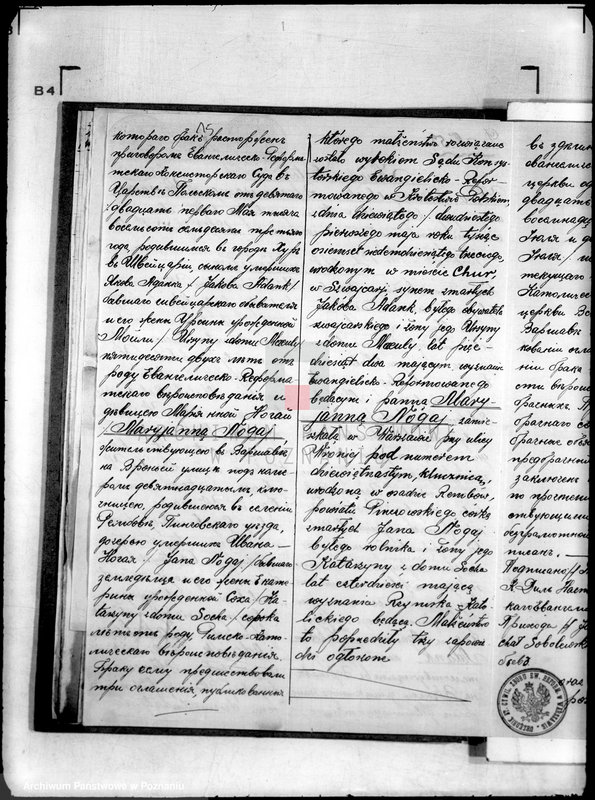 B4
котораго бракъ расторженъ
приговоромъ Евангелическо-Реформ
тскаго Консисторскаго Суда въ
Царствѣ Польскомъ отъ девятаго
/двадцать перваго Мая тысяча
восемьсотъ семьдесятъ третьяго
года, родившимся въ городѣ Хуръ
въ Швейцаріи, сыномъ умершихъ
Якова Аданка / Jakóba Adank /
бывшаго швейцарскаго обывателя
и его жены Урсины урожденной
Моили / Urszyny domu
пятидесяти двухъ лѣтъ отъ
роду Евангелическо-Реформа-
тскаго вѣроисповѣданія и
дѣвицею Маріанною Ногай
/ Maryjanną Nogaj,
жительствующею въ Варшавѣ
на Вроньей улицѣ подъ номе-
ромъ девятнадцатымъ, клю-
чницею, родившеюся въ селеніи
Рембовѣ, Пинчовскаго уѣзда,
дочерью умершихъ Ивана
Ногая / Jana Nogaj / бывшаго
земледѣльца и его жены Екате-
рины урожденной Соха / Ka-
tarzyny z domu Socha / сорока
лѣтъ отъ роду, Римско-Като-
лическаго вѣроисповѣданія.
Браку сему предшествовали
три оглашенія, публикованныя
którego małżeństwo rozwiązane
zostało wyrokiem Sądu Konsys-
torskiego Ewangielicko-Refor-
mowanego w Królestwie Polskiem
z dnia dziewiątego / dwudziestego
pierwszego maja roku tysiąc
ośmset siedemdziesiątego trzeciego,
urodzonym w mieście Chur,
w Szwajcarji synem zmarłych
Jakóba Adank, byłego obywatela
szwajcarskiego i żony jego Urszyny
z domu lat pięć-
dziesiąt dwa mającym wyznania
Ewangielicko-Reformowanego
będącym i panną Mary-
janną Nogaj, zamie-
szkałą w Warszawie przy ulicy
Wroniej pod numerem
dziewiętnastym, klucznicą,
urodzoną w osadzie Rembów,
powiatu Pinczowskiego córką
zmarłych Jana Nogaj
byłego rolnika i żony jego
Katarzyny z domu Socha
lat czterdzieści mającą
wyznania Rzymsko-Kato-
lickiego będącą. Małżeństwo
to poprzedziły trzy zapowie-
dzi ogłoszone
въ здѣшн
ованеличе
церкви од
двадцать
восемнадц
Іюля и д
Іюля /
текущаго
Католиче
церкви Во
Варшавѣ
Подписано:
chał Sobolewski
Archiwum Państwowe w Poznaniu